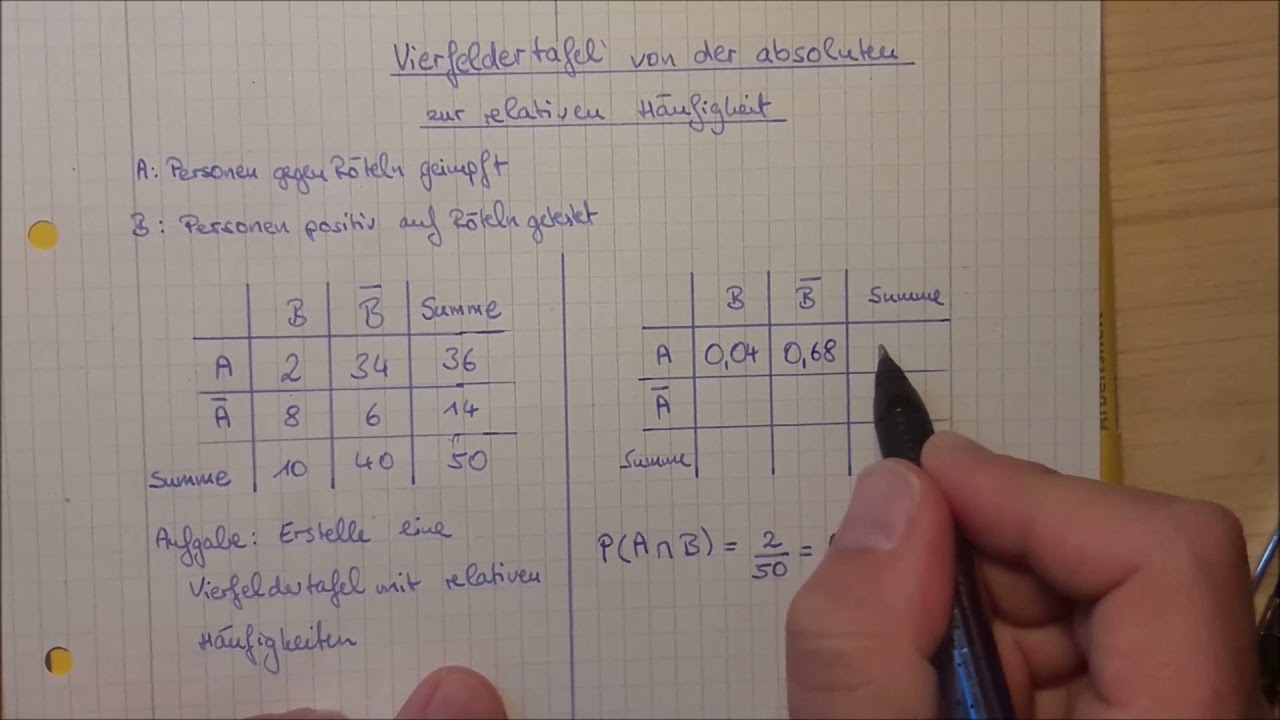 Vierfeldertafel von der absoluten
zur relativen Häufigkeit
A: Personen gegen Röteln geimpft
B: Personen positiv auf Röteln getestet
B B̅ Summe
A 2 34 36
A̅ 8 6 14
Summe 10 40 50
Aufgabe: Erstelle eine
Vierfeldertafel mit relativen
Häufigkeiten
B B̅ Summe
A 0,04 0,68
A̅
Summe
P(A∩B) = 2/50 =